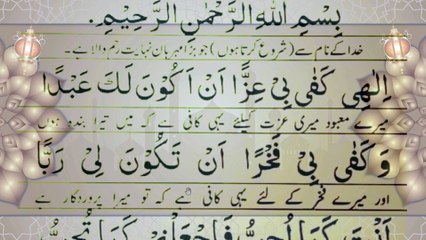 بِسْمِ اللهِ الرَّحْمٰنِ الرَّحِيْمِ.
خدا کے نام سے (شروع کرتا ہوں) جو بڑا مہربان نہایت رحم والا ہے۔
اِلٰهِيْ كَفٰى بِيْ عِزًّا اَنْ اَكُوْنَ لَكَ عَبْدًا
میرے معبود میری عزت کیلئے یہی کافی ہے کہ میں تیرا بندہ ہوں
وَ كَفٰى بِيْ فَخْرًا اَنْ تَكُوْنَ لِيْ رَبًّا
اور میرے فخر کے لئے یہی کافی ہے کہ تو میرا پروردگار ہے
اَنْتَ كَمَا اُحِبُّ فَاجْعَلْنِيْ كَمَا تُحِبُّ